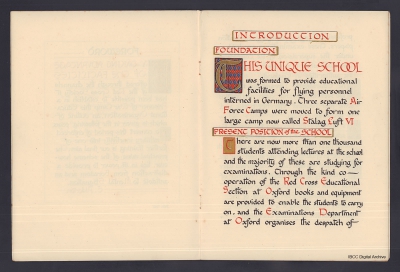 INTRODUCTION
FOUNDATION
THIS UNIQUE SCHOOL
was formed to provide educational
facilities for flying personnel
interned in Germany. Three separate Air-
Force Camps were moved to form one
large camp now called Stalag Luft VI
PRESENT POSITION of the SCHOOL
There are now more than one thousand
students attending lectures at the school
and the majority of these are studying for
examinations. Through the kind co—
operation of the Red Cross Educational
Section at Oxford books and equipment
are provided to enable the students to carry
on, and the Examinations Department
at Oxford organises the despatch of—
IBCC Digital Archive